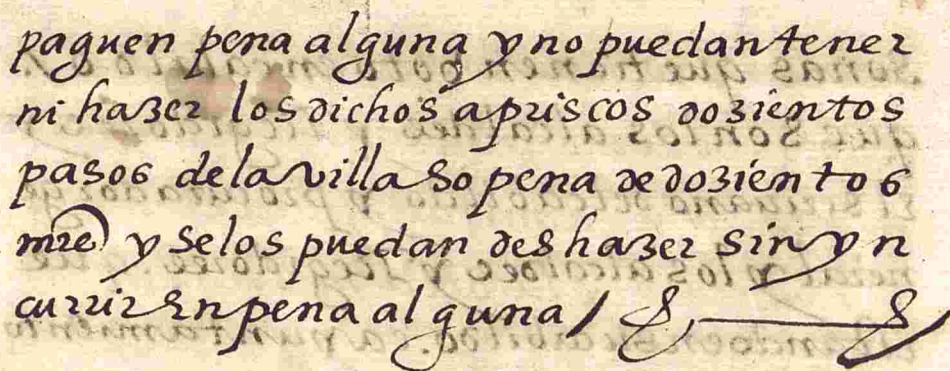 paguen pena alguna y no puedan tener
ni hazer los dichos apriscos dozientos
pasos de la villa so pena de dozientos
mrs y se los puedan deshazer sin yn
currir en pena alguna /